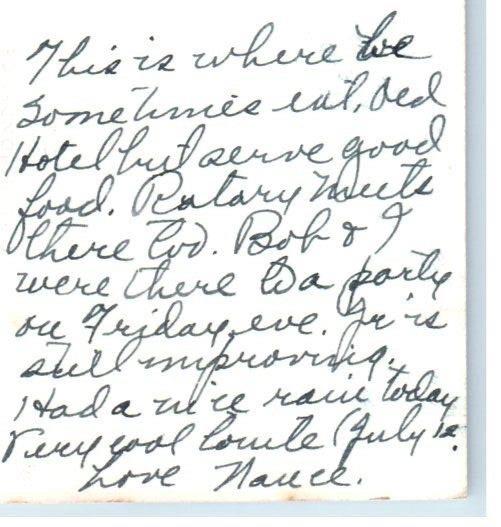 This is where we
sometimes eat. Old
Hotel but serve good
food. Rotary meets
there too. Bob & I
were there to a party
on Friday eve. Jr is
still improving.
Had a nice rain today
Very cool tonite (July 12.
Love Nance.